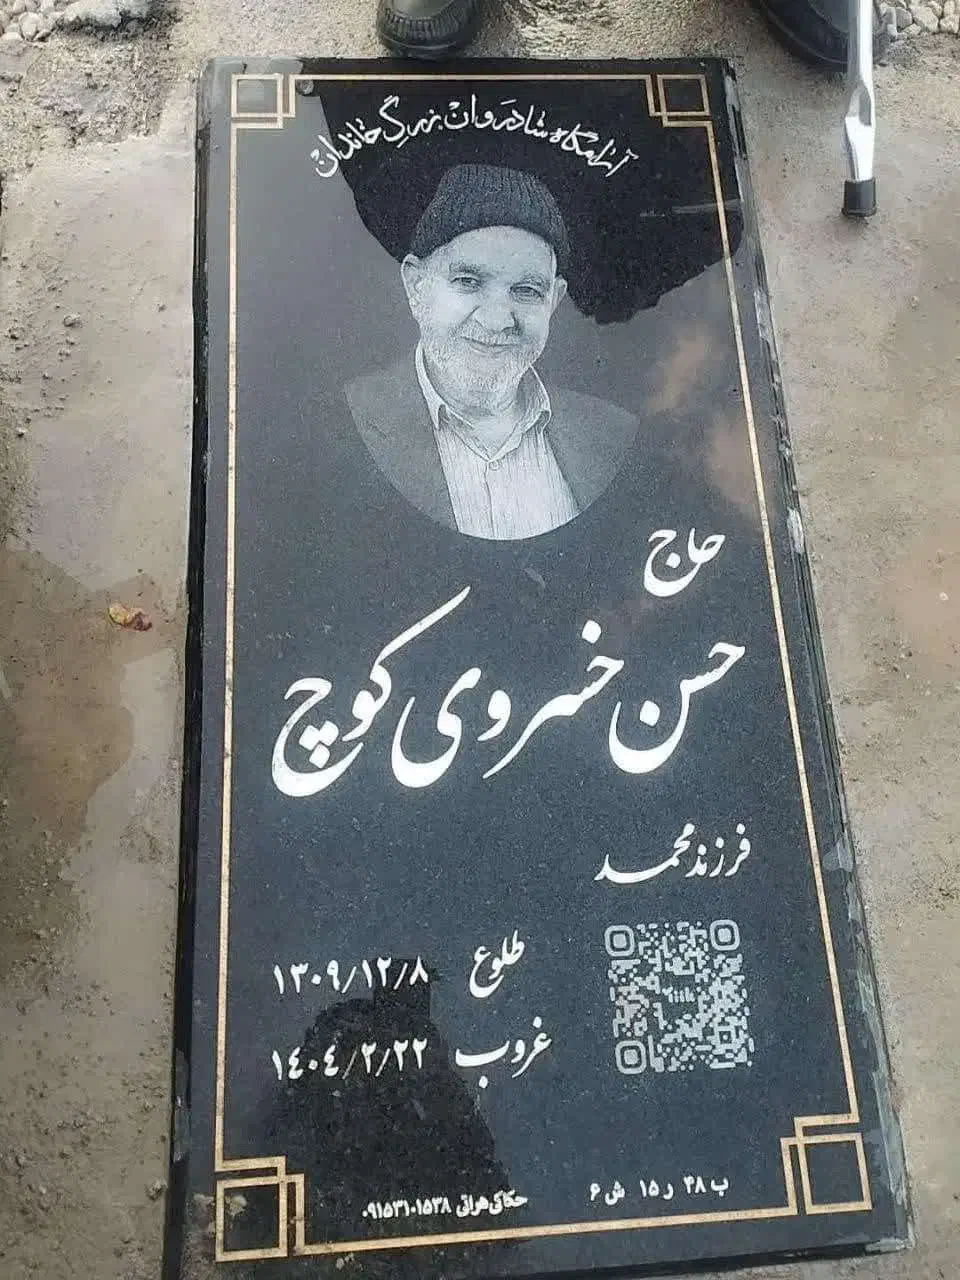 آرامگاه شادروان بزرگ خاندان
حاج
حسن خسروی کوچ
فرزند محمد
طلوع ۱۳۰۹/۱۲/۸
غروب ۱۴۰۴/۲/۲۲
ب ۴۸ ر ۱۵ ش ۶
حکاکی هراتی ۰۹۱۵۳۱۰۱۵۳۸